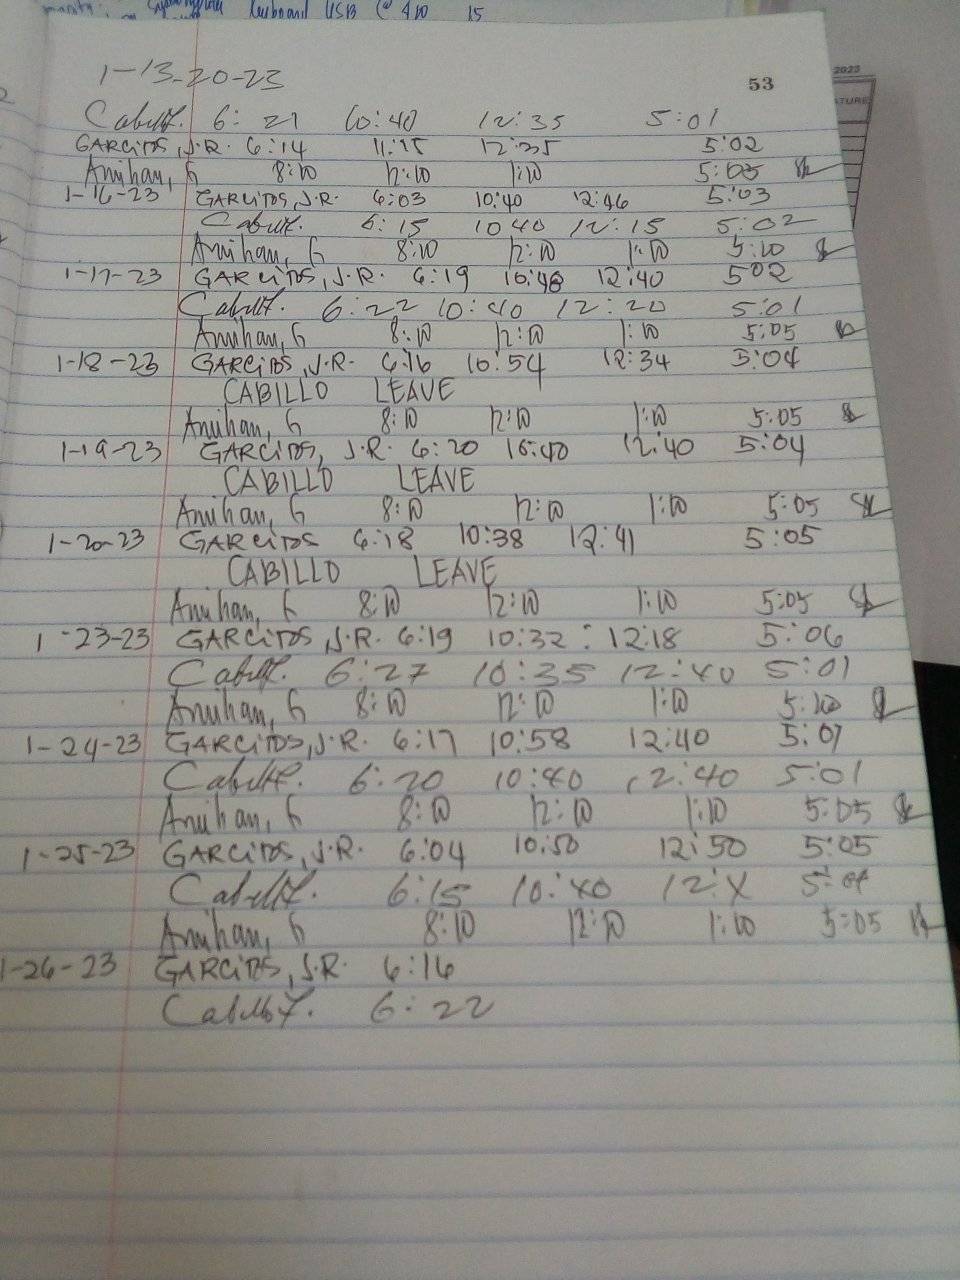 Keyboard USB @ 410 15
2023
1-13-20-23
53
Cabillo. 6:21 10:40 12:35 5:01
GARCITOS, J.R. 6:14 11:15 12:35 5:02
Anihan, G 8:10 12:10 1:10 5:05
1-16-23 GARCITOS, J.R. 6:03 10:40 12:46 5:03
6:15 1040 12:15 5:02
Anihan, G 8:10 12:10 1:10 5:10
1-17-23 GARCITOS, J.R. 6:19 10:48 12:40 502
6:22 10:40 12:20 5:01
Anihan, G 8:10 12:10 1:10 5:05
1-18-23 GARCITOS, J.R. 6:16 10:54 12:34 5:04
CABILLO LEAVE
Anihan, G 8:10 12:10 1:10 5:05
1-19-23 GARCITOS, J.R. 6:20 10:40 12:40 5:04
CABILLO LEAVE
Anihan, G 8:10 12:10 1:10 5:05
1-20-23 GARCITOS 6:18 10:38 12:41 5:05
CABILLO LEAVE
Anihan, G 8:10 12:10 1:10 5:05
1-23-23 GARCITOS, J.R. 6:19 10:32 : 12:18 5:06
6:27 10:35 12:40 5:01
Anihan, G 8:10 12:10 1:10 5:10
1-24-23 GARCITOS, J.R. 6:17 10:58 12:40 5:07
6:20 10:40 12:40 5:01
Anihan, G 8:10 12:10 1:10 5:05
1-25-23 GARCITOS, J.R. 6:04 10:50 12:50 5:05
6:15 10:40
Anihan, G 8:10 12:10 1:10 5:05
1-26-23 GARCITOS, J.R. 6:16
6:22